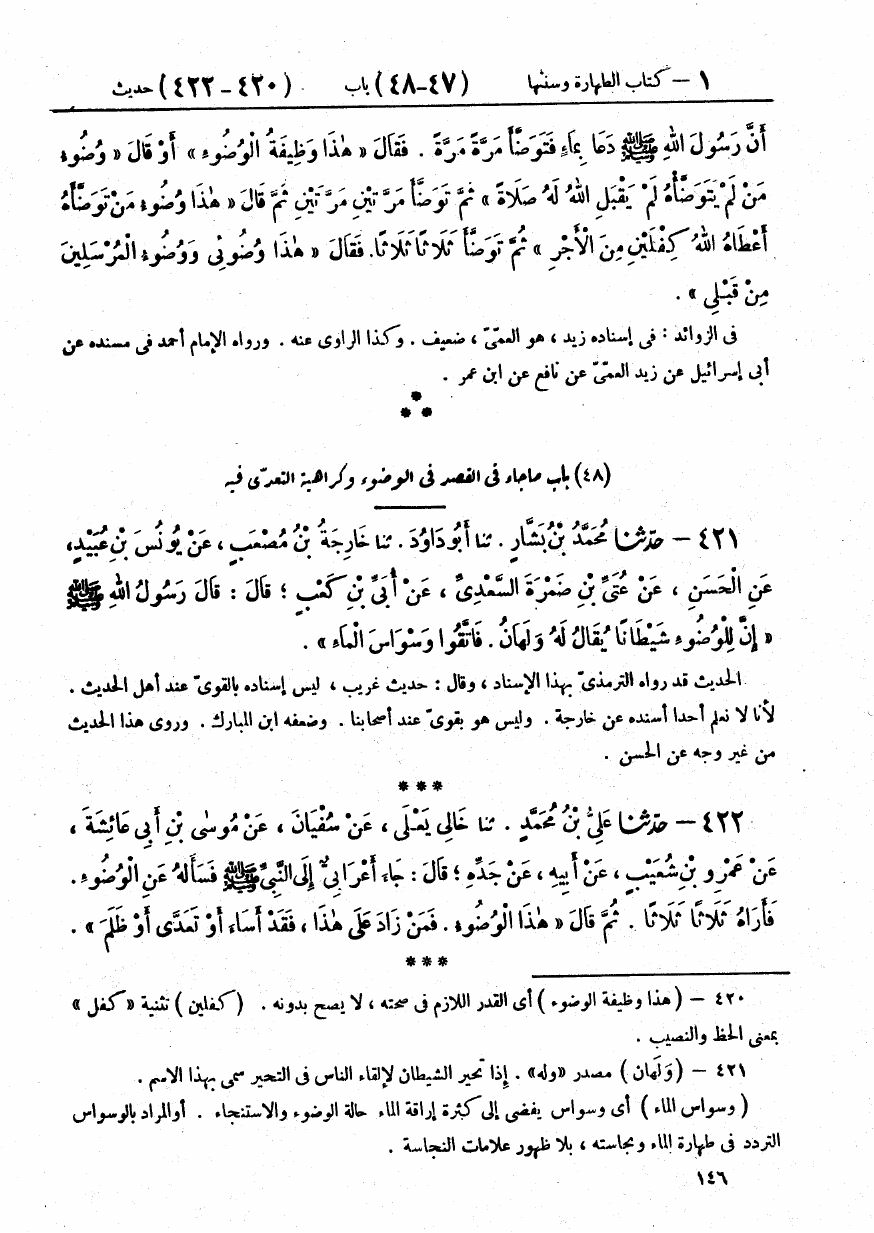 ١ – كتاب الطهارة وسننها (٤٧-٤٨) باب (٤٢٠-٤٢٢) حديث
أَنَّ رَسُولَ اللهِ ﷺ دَعَا بِمَاءٍ فَتَوَضَّأَ مَرَّةً مَرَّةً . فَقَالَ « هٰذَا وَظِيفَةُ الْوُضُوءِ » أَوْ قَالَ « وُضُوءِ
مَنْ لَمْ يَتَوَضَّأْهُ لَمْ يَقْبَلِ اللهُ لَهُ صَلَاةً » ثُمَّ تَوَضَّأَ مَرَّتَيْنِ مَرَّتَيْنِ ثُمَّ قَالَ « هٰذَا وُضُوءِ مَنْ تَوَضَّأَهُ
أَعْطَاهُ اللهُ كِفْلَيْنِ مِنَ الْأَجْرِ » ثُمَّ تَوَضَّأَ ثَلَاثًا ثَلَاثًا. فَقَالَ « هٰذَا وُضُوئِى وَوُضُوءِ الْمُرْسَلِينَ
مِنْ قَبْلِى » .
فى الزوائد : فى إسناده زيد ، هو العمّىّ ، ضعيف . وكذا الراوى عنه . ورواه الإمام أحمد فى مسنده عن
أبى إسرائيل عن زيد العمّىّ عن نافع عن ابن عمر .
*
* *
(٤٨) باب ماجاء فى القصد فى الوضوء وكراهية التعدّى فيه
٤٢١ – حدّثنا مُحَمَّدُ بْنُ بَشَّارٍ . ثنا أَبُو دَاوُدَ . ثنا خَارِجَةُ بْنُ مُصْعَبٍ ، عَنْ يُونُسَ بْنِ عُبَيْدٍ،
عَنِ الْحَسَنِ ، عَنْ عُتَىِّ بْنِ ضَمْرَةَ السَّعْدِىِّ ، عَنْ أُبَىِّ بْنِ كَعْبٍ ؛ قَالَ : قَالَ رَسُولُ اللهِ ﷺ
« إِنَّ لِلْوُضُوءِ شَيْطَانًا يُقَالُ لَهُ وَلَهَانُ. فَاتَّقُوا وَسْوَاسَ الْمَاءِ » .
الحديث قد رواه الترمذىّ بهذا الإسناد ، وقال : حديث غريب ، ليس إسناده بالقوىّ عند أهل الحديث .
لأنا لا نعلم أحدا أسنده عن خارجة . وليس هو بقوىّ عند أصحابنا . وضعفه ابن المبارك . وروى هذا الحديث
من غير وجه عن الحسن .
* * *
٤٢٢ – حدّثنا عَلِىُّ بْنُ مُحَمَّدٍ . ثنا خَالِى يَعْلَى ، عَنْ سُفْيَانَ ، عَنْ مُوسٰى بْنِ أَبِى عَائِشَةَ ،
عَنْ عَمْرِو بْنِ شُعَيْبٍ ، عَنْ أَبِيهِ ، عَنْ جَدِّهِ ؛ قَالَ : جَاءَ أَعْرَابِىٌّ إِلَى النَّبِىِّ ﷺ فَسَأَلَهُ عَنِ الْوُضُوءِ.
فَأَرَاهُ ثَلَاثًا ثَلَاثًا . ثُمَّ قَالَ « هٰذَا الْوُضُوءِ . فَمَنْ زَادَ عَلَى هٰذَا ، فَقَدْ أَسَاءَ أَوْ تَعَدَّى أَوْ ظَلَمَ » .
* * *
٤٢٠ – ( هذا وظيفة الوضوء ) أى القدر اللازم فى صحته ، لا يصح بدونه . (كفلين ) تثنية « كفل »
بمعنى الحظ والنصيب .
٤٢١ – (وَلَهان ) مصدر «وله» . إذا تحير الشيطان لإلقاء الناس فى التحير سمى بهذا الاسم .
( وسواس الماء ) أى وسواس يفضى إلى كثرة إراقة الماء حالة الوضوء والاستنجاء . أوالمراد بالوسواس
التردد فى طهارة الماء ونجاسته ، بلا ظهور علامات النجاسة .
١٤٦